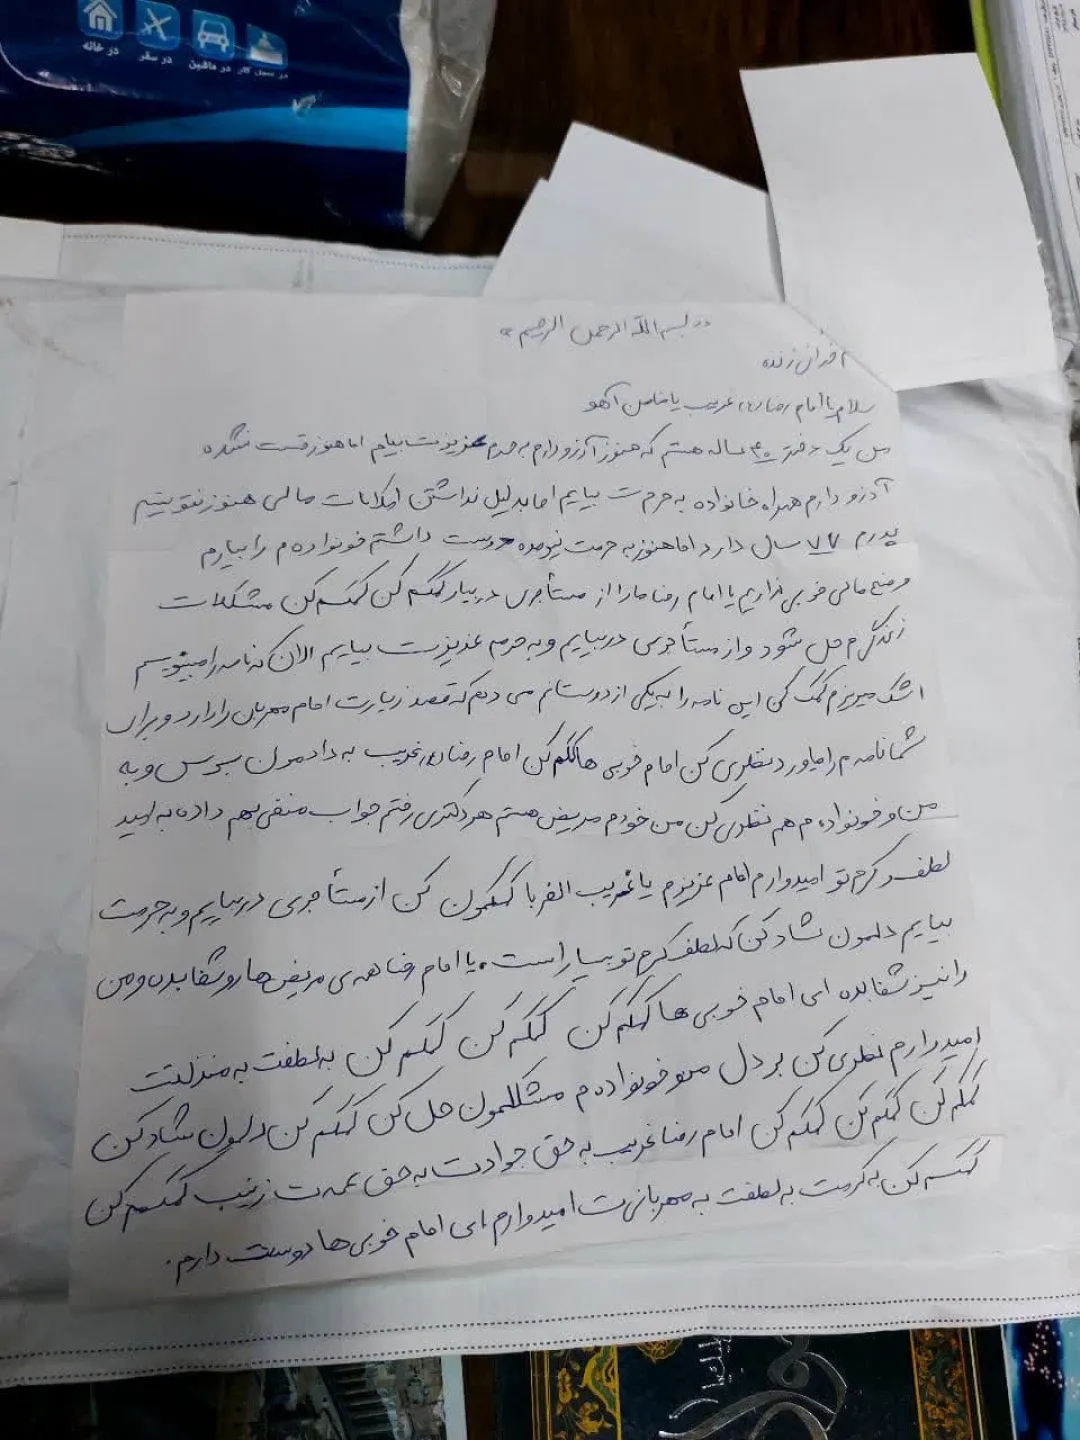 در خانه
در سفر
در ماشین
در محل کار
«بسم الله الرحمن الرحیم»
سلام یا امام رضای غریب یا ضامن آهو
من یک دختر ۴۰ ساله هستم که هنوز آرزو دارم به حرم عزیزت بیایم اما هنوز قسمت نشده
آرزو دارم همراه خانواده به حرمت بیایم اما بدلیل نداشتن امکانات مالی هنوز نتونستیم
پدرم ۷۷ سال دارد اما هنوز به حرمت نیومده دوست داشتم خونواده م را بیارم
وضع مالی خوبی نداریم یا امام رضا ما را از مستأجری دربیار کمکم کن کمکم کن مشکلات
زندگی م حل شود و از مستأجری دربیایم و به حرمه عزیزت بیایم الان که نامه را مینویسم
اشک میریزم کمک کن این نامه را به یکی از دوستانم می دهم که قصد زیارت امام مهربان را دارد و برای
شما نامه م را میاورد نظری کن امام خوبی ها کمکم کن امام رضای غریب به دادمون برس و به
من و خونواده م هم نظری کن من خودم مریض هستم هر دکتری رفتم جواب منفی بهم داده به امید
لطف و کرم تو امیدوارم امام عزیزم یا غریب الغربا کمکمون کن از مستأجری دربیایم و به حرمت
بیایم دلمون شاد کن که لطف کرم تو بسیار است، یا امام رضا همه ی مریض ها رو شفا بده و من
را نیز شفا بده ای امام خوبی ها کمکم کن کمکم کن کمکم کن به لطفت به منزلتت
امیدوارم نظری کن بر دل من و خونواده م مشکلمون حل کن کمکم کن دلمون شاد کن
کمکم کن کمکم کن کمکم کن امام رضا غریب به حق جوادت به حق عمه ت زینب کمکم کن
کمکم کن به کرمت به لطفت به مهربانی ت امیدوارم ای امام خوبی ها دوستت دارم.